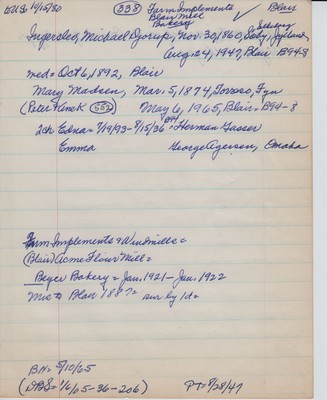 (338) Farm Implements Blair
Blair Mill
Bakery
Ingersleo, Michael Djorup, Nov. 30, 1860, Seeby, Jylland,
Aug. 24, 1947, Blair B94-8
wed= Oct 6, 1892, Blair
Mary Madsen, Mar. 5, 1874, Tovoro, Fyn
(Peter Henck (552)) May 6, 1965, Blair= B94-8
2ch Edna= 7/19/93- 8/15/36 = Herman Gasser
Emma George Agersen, Omaha
Farm Implements & Windmills=
(Blair) Acme Flour Mill=
Beyer Bakery= Jan. 1921- Jan. 1922
Mic to Blair 1887= sur by 1d=
BN= 5/10/65
(DBS= 16/05-36-206) PT= 8/28/47